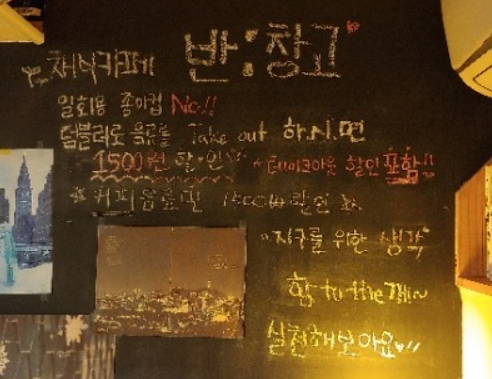 반:창고
채식카페
일회용 종이컵 No!!
텀블러로 음료를 Take out 하시면
1500원 할인
*테이크아웃 할인 포함!!
*커피음료만 1500₩ 할인
지구를 위한 생각
함 to the 께~
실천해보아요